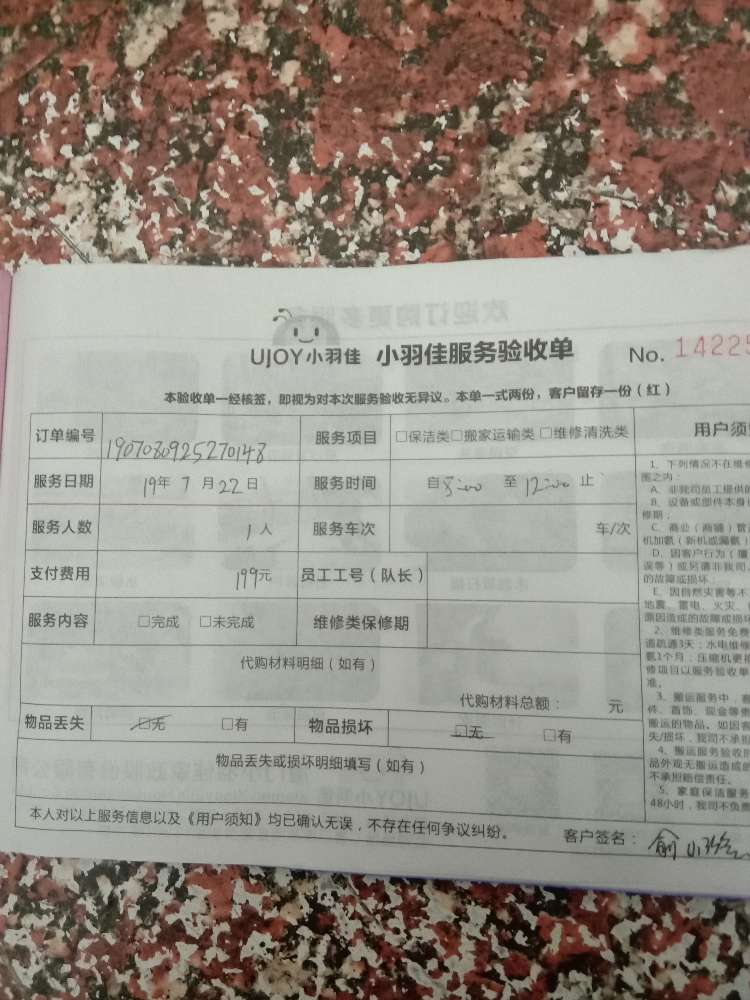 UJOY小羽佳 小羽佳服务验收单 No. 14225
本验收单一经核签，即视为对本次服务验收无异议。本单一式两份，客户留存一份（红）
订单编号 1907080925270148 服务项目 □保洁类□搬家运输类 □维修清洗类
服务日期 19年 7 月 22 日 服务时间 自 8:00 至 12:00 止
服务人数 1 人 服务车次 车/次
支付费用 199元 员工工号（队长）
服务内容 □完成 □未完成 维修类保修期
代购材料明细（如有）
代购材料总额： 元
物品丢失 □无 □有 物品损坏 □无 □有
物品丢失或损坏明细填写（如有）
本人对以上服务信息以及《用户须知》均已确认无误，不存在任何争议纠纷。 客户签名： 俞小
用户须
1、下列情况不在维修
围之内：
A、非我司员工提供的
B、设备或部件本身
修期；
C、商业（商铺）
机加氨（新机或漏氨）
D、因客户行为（
误等）或另请非我司
的故障或损坏；
E、因自然灾害等不
地震、雷电、火灾、
原因造成的故障或损坏
2、维修类服务免费
通疏通3天；水电维修
氨1个月；压缩机更换
修项目以服务验收单
准。
3、搬运服务中，
件、首饰、现金等贵
搬运的物品。如因客
失/损坏，我司不承担
4、搬运服务验收
品外观无搬运造成的
不承担赔偿责任。
5、家庭保洁服务
48小时，我司不负责